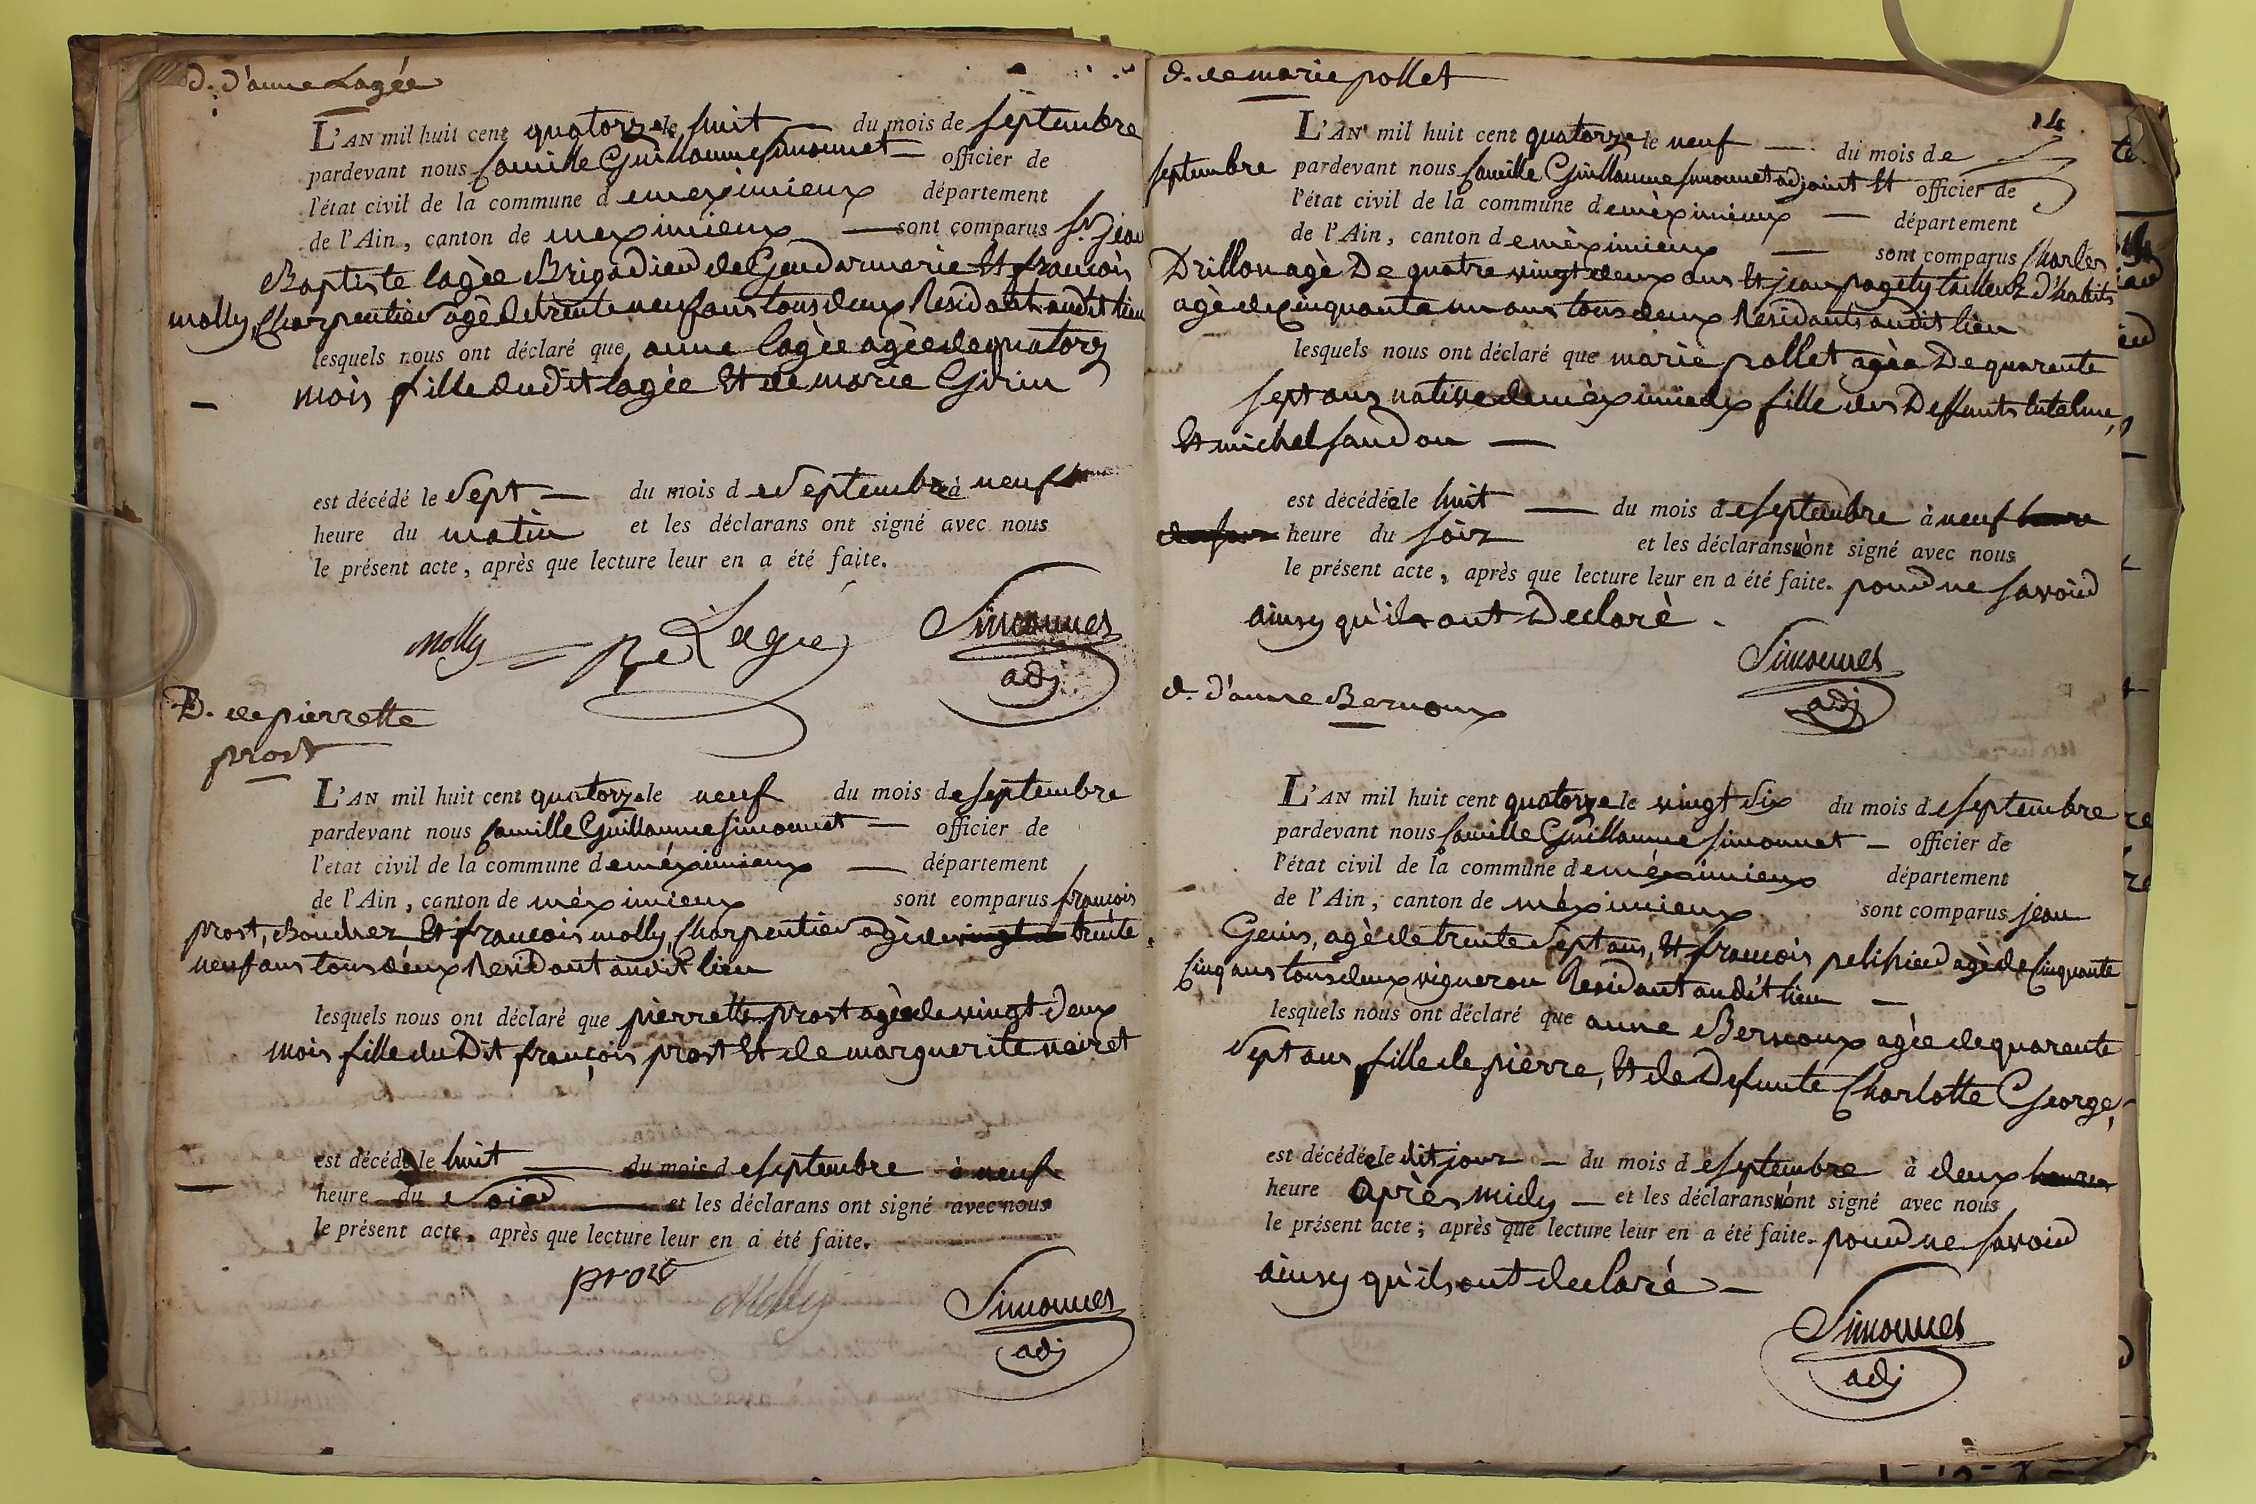 d. d'anne Lagée
L'AN mil huit cent quatorze le huit — du mois de septembre
pardevant nous Camille Guillaume simonnet — officier de
l'état civil de la commune d emeximieux département
de l'Ain, canton de meximieux — sont comparus sr. jean
Baptiste lagèe Brigadier de Gendarmerie Et françois
molly, Charpentier agè de trente neuf ans tous deux Residant audit lieu
lesquels nous ont déclaré que anne lagèe agèe de quatorz
mois fille dudit lagée Et de marie Girin
est décédé le sept — du mois d e septembre à neuf
heure du matin et les déclarans ont signé avec nous
le présent acte, après que lecture leur en a été faite.
Molly Lagie Simonnet
adj
D. de pierrette
prost
L'AN mil huit cent quatorze le neuf du mois de septembre
pardevant nous Camille Guillaume simonnet — officier de
l'état civil de la commune d emèximieux — département
de l'Ain, canton de mèximieux sont comparus françois
prost, Boucher Et françois molly, Charpentier agè de vingt trente
neuf ans tous deux Residant audit lieu
lesquels nous ont déclaré que pierrette prost agèe de vingt deux
mois fille du Dit françois prost Et de marguerite neiret
est décédé le huit — du mois d e septembre à neuf
heure du soir — et les déclarans ont signé avec nous
le présent acte, après que lecture leur en a été faite.
prost Molly Simonnet
adj
d. de marie pollet
14
L'AN mil huit cent quatorze le neuf — du mois de
septembre pardevant nous Camille Guillaume simonnet adjoint Et officier de
l'état civil de la commune d emèximieux — département
de l'Ain, canton d emèximieux — sont comparus Charles
Drillon agè De quatre vingt deux ans Et jean pagety tailleur d'habits
agè de cinquante un ans tous deux Residants audit lieu
lesquels nous ont déclaré que marie pollet agèe De quarente
sept ans native de mèximieux fille des Deffunts
Et michel sandon —
est décédée le huit — du mois d e septembre à neuf heure
du soir heure du soir et les déclarans n'ont signé avec nous
le présent acte, après que lecture leur en a été faite. pour ne savoir
ainsy qu'ils ont Declarè.
Simonnet
adj
d. d'anne Bernoux
L'AN mil huit cent quatorze le vingt six du mois d e septembre
pardevant nous Camille Guillaume simonnet — officier de
l'état civil de la commune d emèximieux département
de l'Ain, canton de mèximieux sont comparus jean
Genis, agè de trente sept ans, Et françois pelissier agè de Cinquante
Cinq ans tous deux vigneron Residant audit lieu —
lesquels nous ont déclaré que anne Bernoux agèe de quarente
sept ans, fille de pierre, Et de Defunte Charlotte George,
est décédée le dit jour — du mois d e septembre à deux heures
heure Après midy — et les déclarans n'ont signé avec nous
le présent acte; après que lecture leur en a été faite. pour ne savoir
ainsy qu'ils ont declaré —
Simonnet
adj